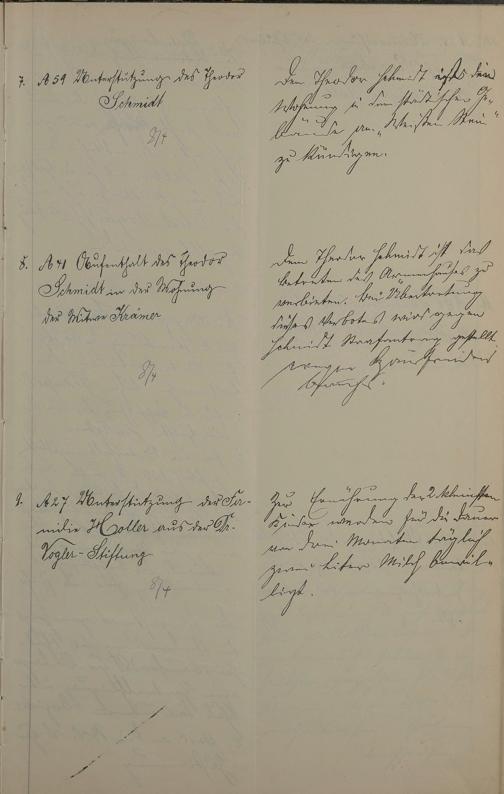 7. A 59 Unterstützung des Theodor
Schmidt
8/4
Dem Theodor Schmidt ist die
Wohnung in dem städtischen Ge-
bäude am "Weißen Stein"
zu kündigen.
8. A 41 Aufenthalt des Theodor
Schmidt in der Wohnung
der Witwe Krämer
8/4
Dem Theodor Schmidt ist das
Betreten des Armenhauses zu
verbieten. Bei Übertretung
dieses Verbotes wird gegen
Schmidt Strafantrag gestellt
wegen Hausfriedens
bruchs.
9. A 27 Unterstützung der Fa-
milie Holler aus der
Vogler-Stiftung
8/4
Zur Ernährung der 2 kleinsten
Kinder werden für die Dauer
von drei Monaten täglich
zwei Liter Milch bewil-
ligt.